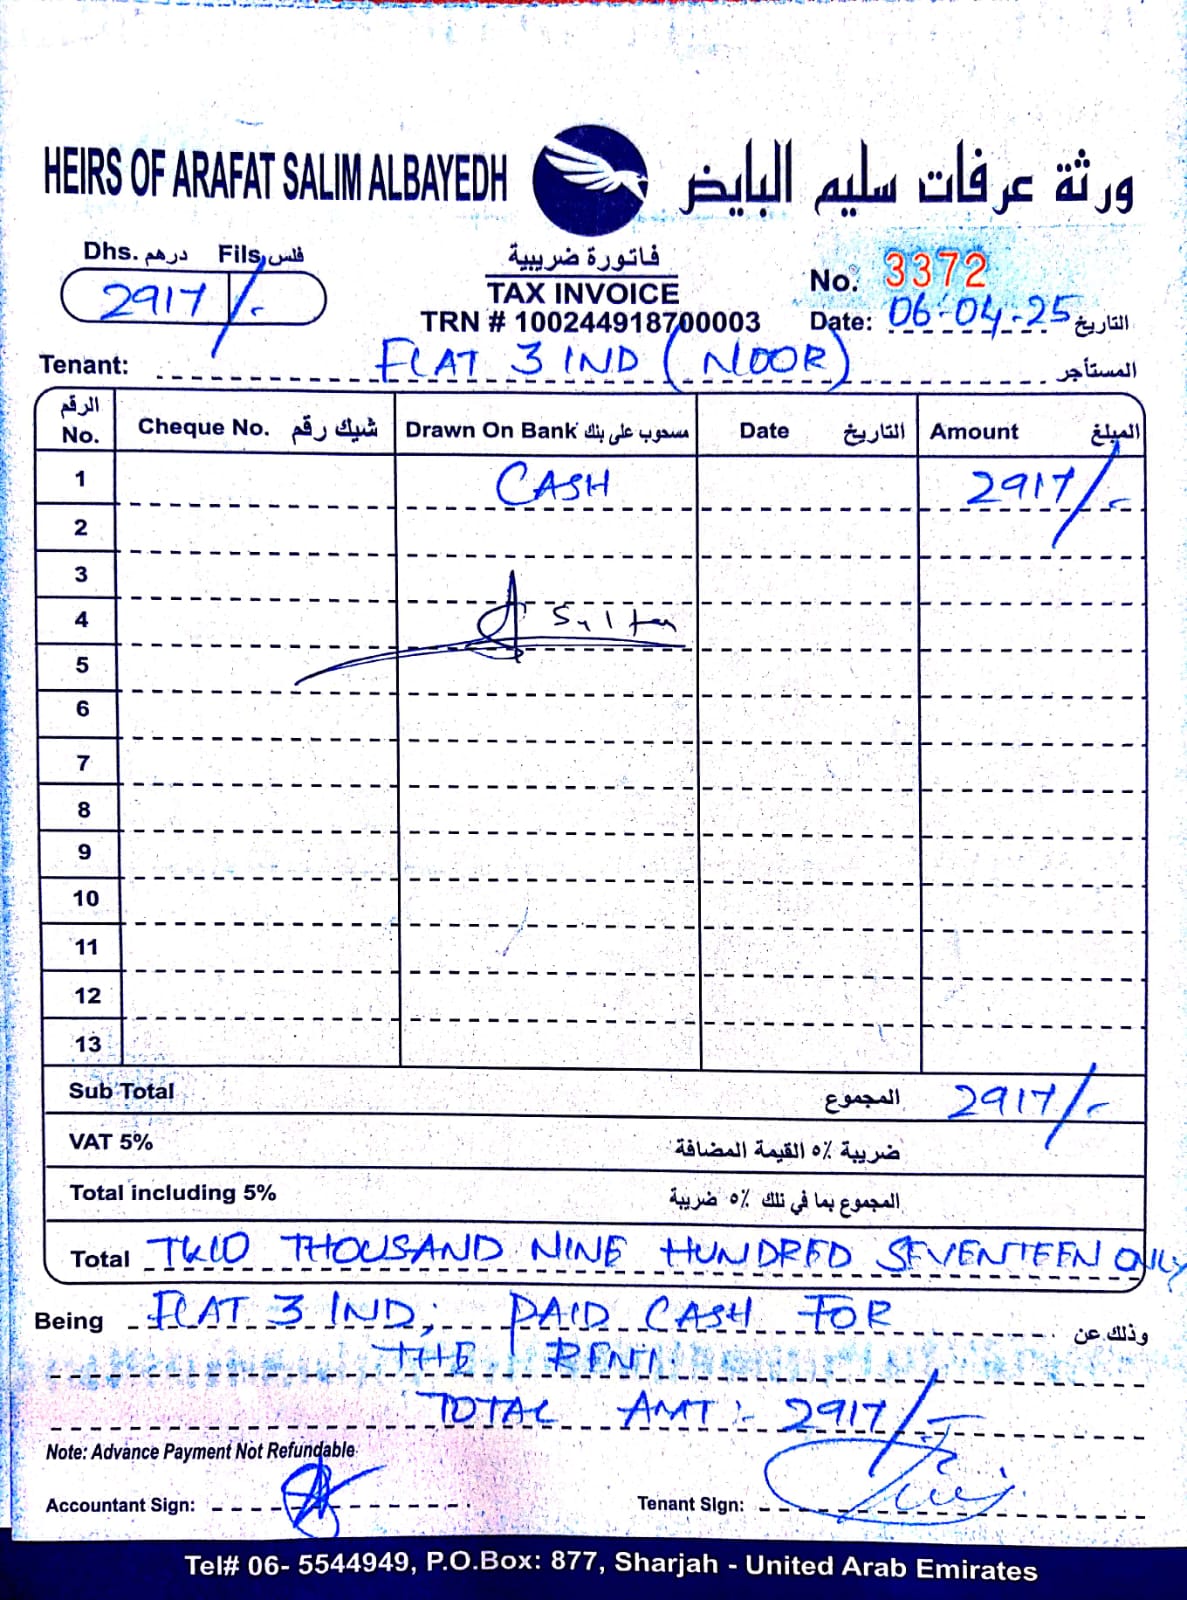 HEIRS OF ARAFAT SALIM ALBAYEDH ورثة عرفات سليم البايض
Dhs. درهم Fils. فلس
2917/-
فاتورة ضريبية
TAX INVOICE
TRN # 100244918700003
No. 3372
Date: 06-04-25 التاريخ
Tenant: FLAT 3 IND (NOOR) المستأجر
الرقم No. Cheque No. شيك رقم Drawn On Bank مسحوب على بنك Date التاريخ Amount المبلغ
1 CASH 2917/-
2
3
4 Sultan
5
6
7
8
9
10
11
12
13
Sub Total المجموع 2917/-
VAT 5% ضريبة ٥٪ القيمة المضافة
Total including 5% المجموع بما في تلك ٥٪ ضريبة
Total TWO THOUSAND NINE HUNDRED SEVENTEEN ONLY
Being FLAT 3 IND, PAID CASH FOR وذلك عن
THE RENT
TOTAL AMT:- 2917/-
Note: Advance Payment Not Refundable
Accountant Sign: Tenant Sign:
Tel# 06- 5544949, P.O.Box: 877, Sharjah - United Arab Emirates